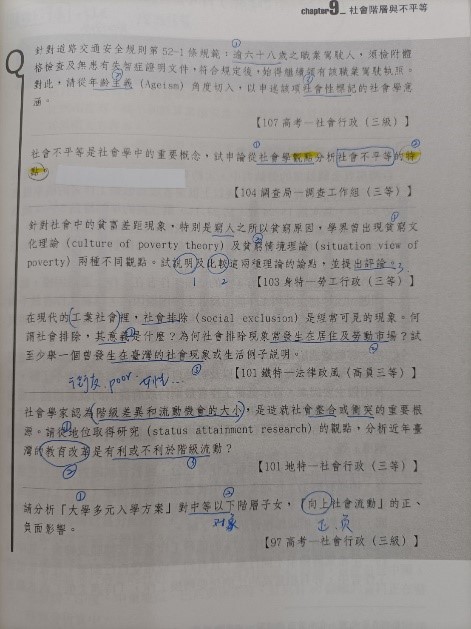 chapter 9_ 社會階層與不平等
Q
針對道路交通安全規則第52-1條規範：逾六十八歲之職業駕駛人，須檢附體
格檢查及無患有失智症證明文件，符合規定後，始得繼續領有該職業駕駛執照。
對此，請從年齡主義（Ageism）角度切入，以申述該項社會性標記的社會學意
涵。
【107 高考—社會行政（三級）】
社會不平等是社會學中的重要概念，試申論從社會學觀點分析社會不平等的特
點。
【104 調查局—調查工作組（三等）】
針對社會中的貧富差距現象，特別是窮人之所以貧窮原因，學界曾出現貧窮文
化理論（culture of poverty theory）及貧窮情境理論（situation view of
poverty）兩種不同觀點。試說明及比較這兩種理論的論點，並提出評論。3.
1 2
【103 身特—勞工行政（三等）】
在現代的工業社會裡，社會排除（social exclusion）是經常可見的現象。何
謂社會排除，其意義是什麼？為何社會排除現象常發生在居住及勞動市場？試
至少舉一個曾發生在臺灣的社會現象或生活例子說明。
poor
【101 鐵特—法律政風（高員三等）】
社會學家認為階級差異和流動機會的大小，是造就社會整合或衝突的重要根
源。請從地位取得研究（status attainment research）的觀點，分析近年臺
灣的教育改革是有利或不利於階級流動？
【101 地特—社會行政（三等）】
請分析「大學多元入學方案」對中等以下階層子女，「向上社會流動」的正、
負面影響。
对象 正.负
【97 高考—社會行政（三級）】